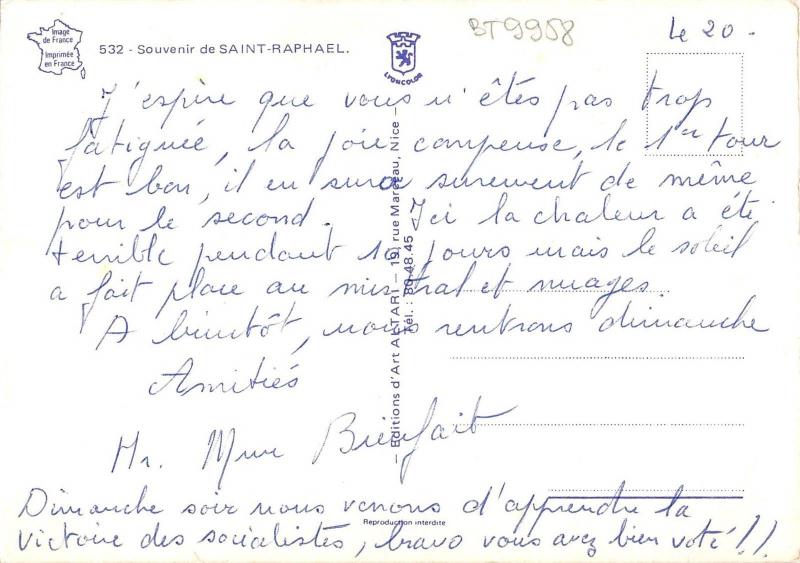 Image
de France
Imprimée
en France
532 - Souvenir de SAINT-RAPHAEL.
LYONCOLOR
BT9958
Le 20.
J'espère que vous n'êtes pas trop
fatiguée, la joie compense, le 1er tour
est bon, il en sura surement de même
pour le second. Ici la chaleur a été
terrible pendant 10 jours mais le soleil
a fait place au mistral et nuages.
A bientôt, nous rentrons dimanche
Amitiés
Mr. Mme Bienfait
Dimanche soir nous venons d'apprendre la
victoire des socialistes, bravo vous avez bien voté!!
Editions d'Art ALTARI — 19, rue Marceau, Nice —
Tél. : 80.48.45
Reproduction interdite